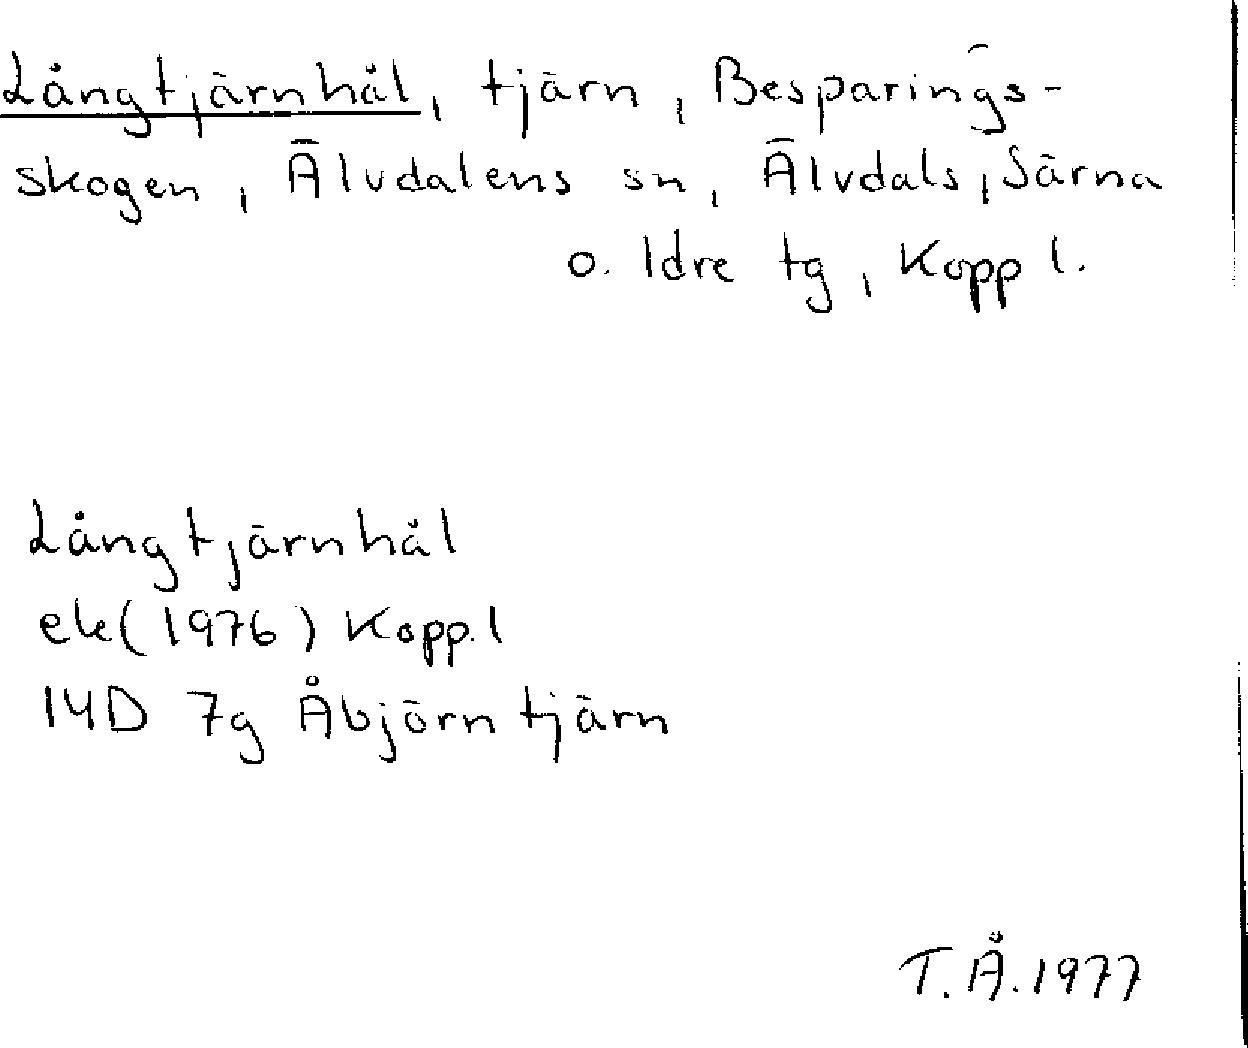 Långtjärnhål, tjärn, Besparings-
skogen, Älvdalens sn, Älvdals, Särna
o. Idre tg, Kopp l.
Långtjärnhål
ek (1976) Kopp. l
14D 7g Åbjörntjärn
T.Å. 1977